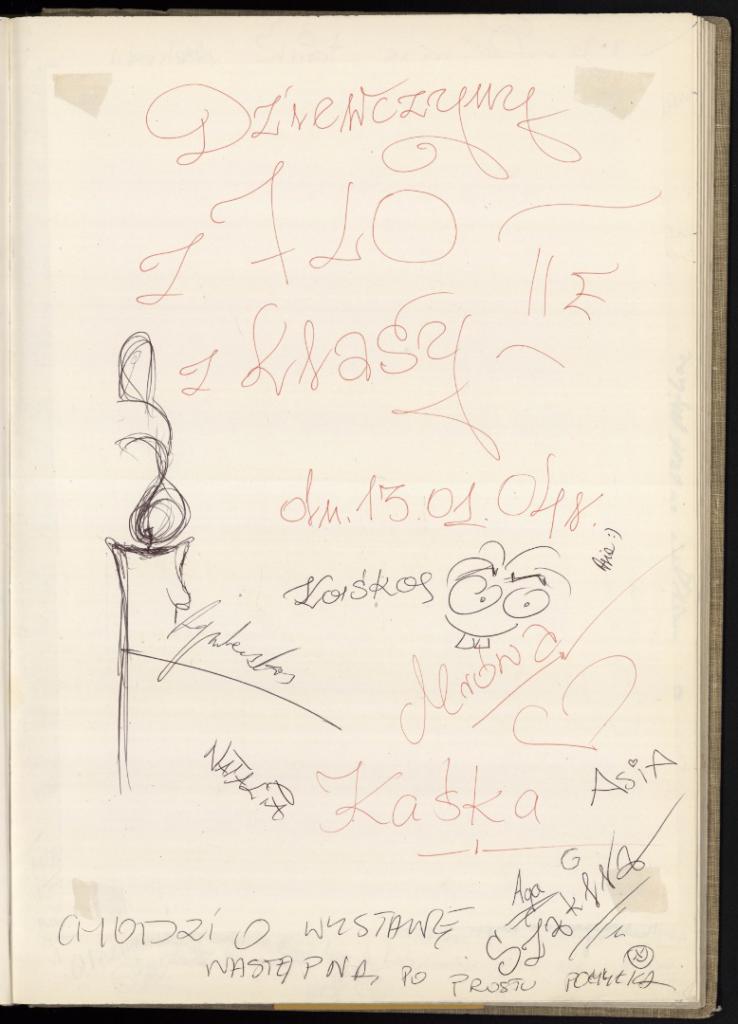 Dziewczyny
z 7 LO
z klasy - II E
dn. 13.01.04r.
Kaśkos
Mrówa
NATALIA
Kaśka
ASiA
Aga G
CHODZI O WYSTAWĘ
NASTĘPNĄ, PO PROSTU POMYŁKA